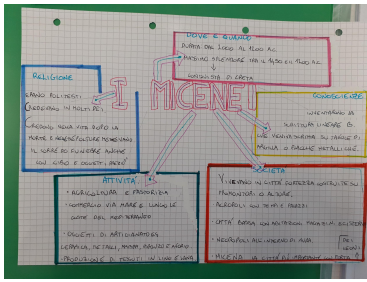 DOVE E QUANDO
DURATA DAL 2000 AL 1200 A.C.
MASSIMO SPLENDORE TRA IL 1450 E IL 1200 A.C.
CONQUISTA DI CRETA
RELIGIONE
ERANO POLITEISTI
CREDEVANO IN MOLTI DEI
CREDONO NELLA VITA DOPO LA
MORTE E NELLE SEPOLTURE METTEVANO
IL CORREDO FUNEBRE ANCHE
CON CIBO E OGGETTI
I MICENEI
CONOSCENZE
INVENTARONO LA
SCRITTURA LINEARE B
CHE VENIVA SCRITTA SU TAVOLE DI
ARGILLA O PLACCHE METALLICHE.
ATTIVITÀ
• AGRICOLTURA E PASTORIZIA
• COMMERCIO VIA MARE E LUNGO LE
COSTE DEL MEDITERRANEO
• OGGETTI DI ARTIGIANATO
CERAMICA, METALLI,
• PRODUZIONE DI TESSUTI IN LINO E LANA
SOCIETÀ
VIVEVANO IN CITTÀ FORTEZZA COSTRUITE SU
PROMONTORI O ALTURE.
ACROPOLI CON TEMPI E PALAZZI
CITTÀ BASSA CON ABITAZIONI MAGAZZINI E
• NECROPOLI ALL'INTERNO DI MURA.
• MICENE LA CITTÀ PIÙ IMPORTANTE CON PORTA
DEI
LEONI